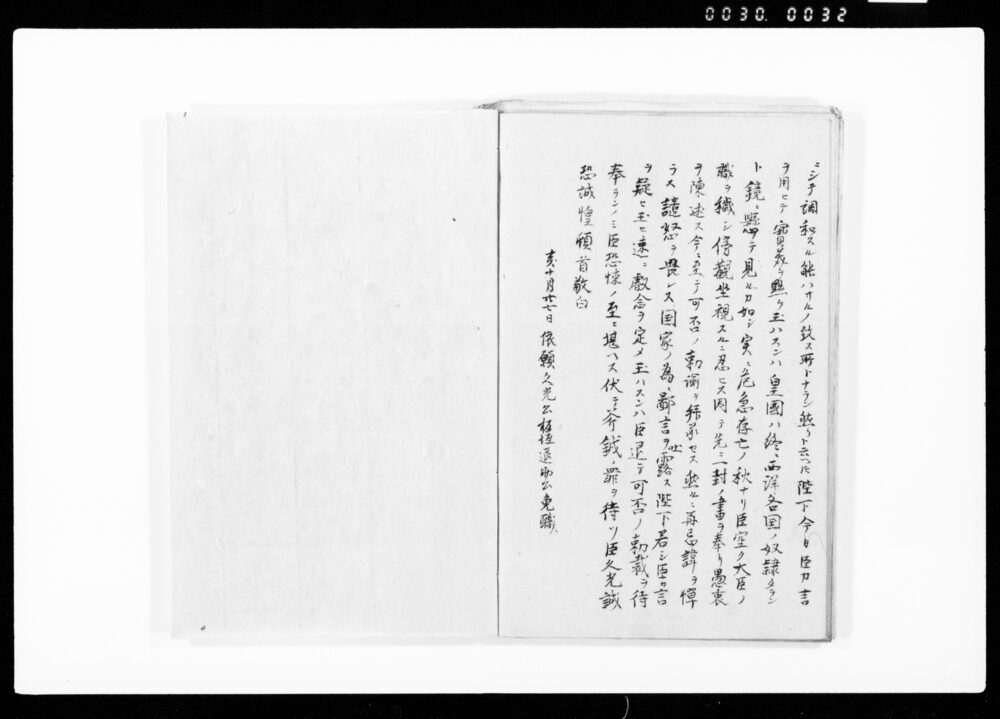 0030. 0032
ミシテ調和スル能ハサルノ致ス所トナラン然リト云ヘトモ陛下今日臣カ言
ヲ用ヒテ玉ハスンハ皇國ハ終ニ西洋各国ノ奴隷タラン
ト鏡ニ懸テ見ルカ如シ実ニ危急存亡ノ秋ナリ臣空ク大臣ノ
職ヲ穢シ傍觀坐視スルニ忍ヒス因テ先ニ一封ノ書ヲ奉リ愚衷
ヲ陳述ス今ニ至テ可否ノ勅諭ヲ拝承セス然ルニ再忌諱ヲ憚
ラス譴怒ヲ畏レス国家ノ為ニ鄙言ヲ吐露ス陛下若シ臣カ言
ヲ疑ヒ玉ヒ速ニ叡念ヲ定メ玉ハスンハ臣退テ可否ノ勅裁ヲ待
奉ランノミ臣恐悚ノ至ニ堪ヘス伏テ斧鉞ノ罪ヲ待ツ臣久光誠
恐誠惶頓首敬白
十月廿七日依願久光公板垣退助公免職